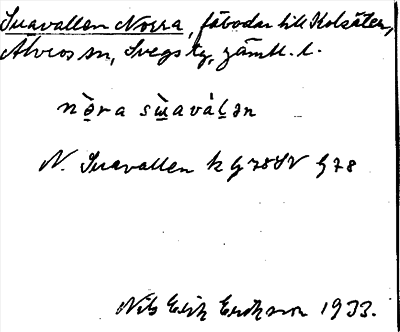 Suavallen Norra, fäbodar till Kolsäter,
Älvros sn, Svegs tg, Jämtl. l.
nə̀ra sẁavàḷən
N. Suavallen k G 78 SV G 78
Nils Erik Eriksson 1933.